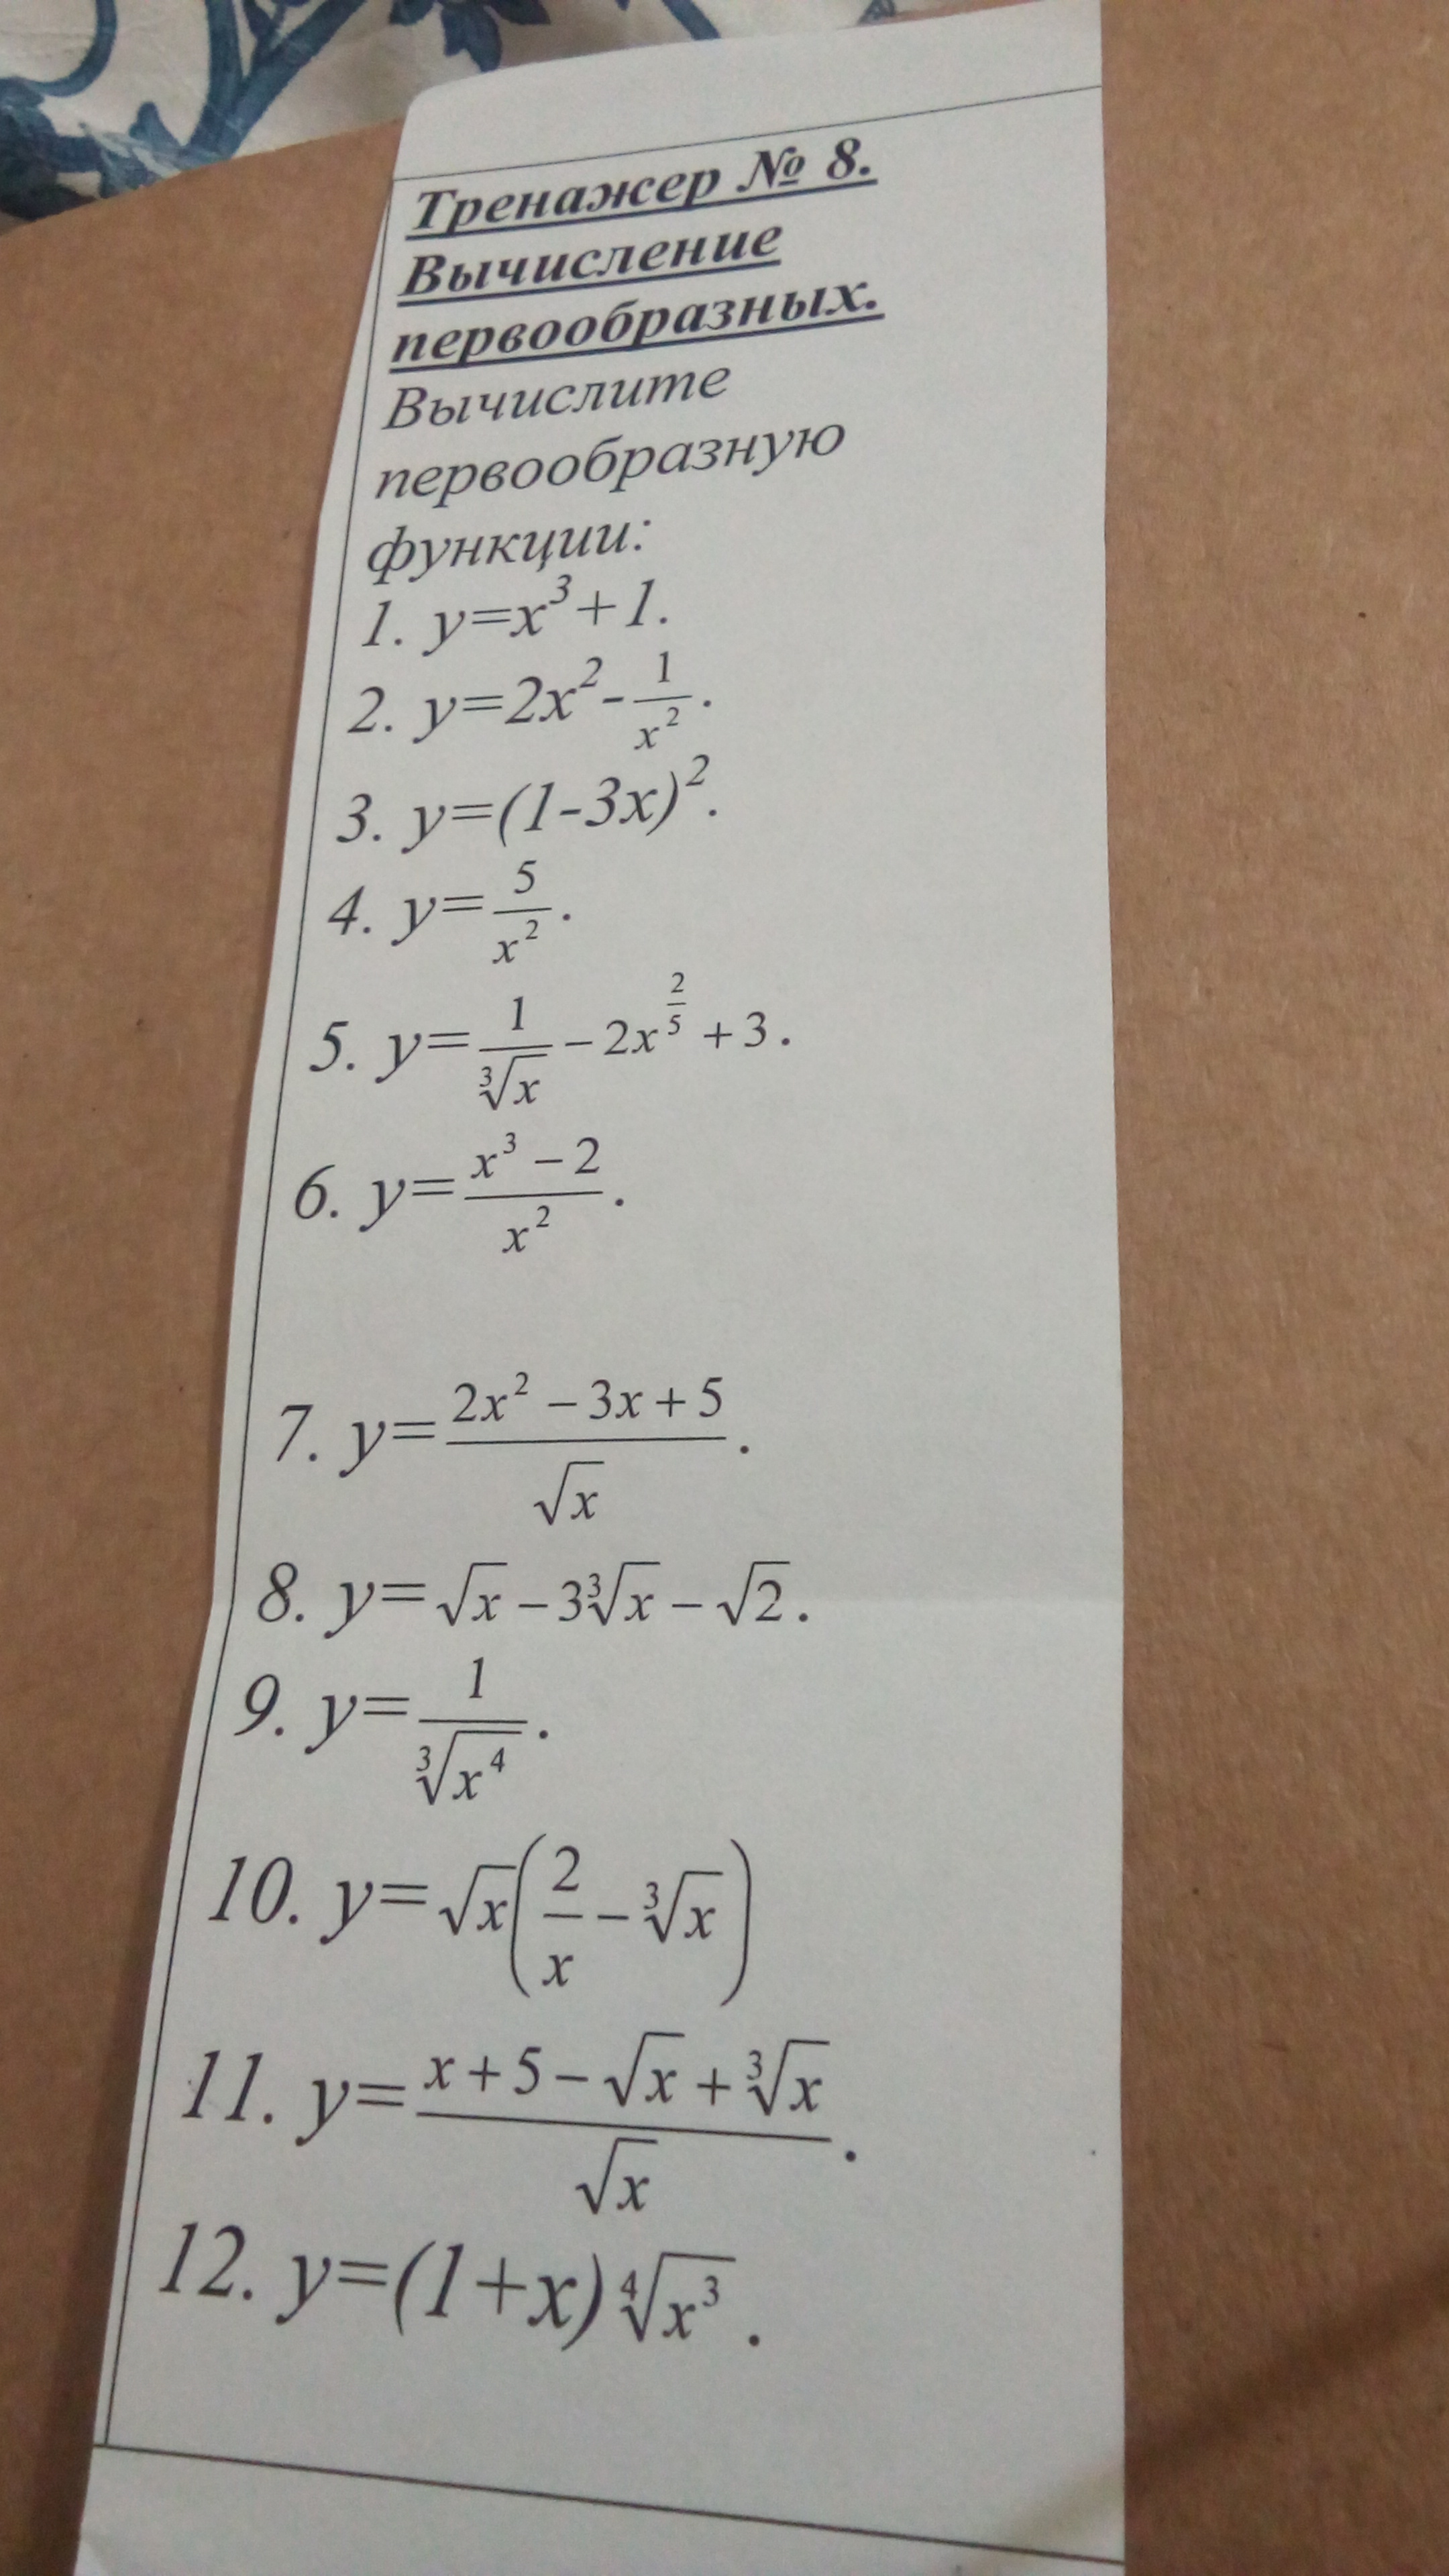 Тренажер № 8.
Вычисление
первообразных.
Вычислите
первообразную
функции:
1. y=x³+1.
2. y=2x²-\frac{1}{x²}.
3. y=(1-3x)².
4. y=\frac{5}{x²}.
5. y=\frac{1}{\sqrt[3]{x}} − 2x^{\frac{2}{5}} + 3.
6. y=\frac{x³ − 2}{x²}.
7. y=\frac{2x² − 3x + 5}{\sqrt{x}}.
8. y=\sqrt{x} − 3\sqrt[3]{x} − \sqrt{2}.
9. y=\frac{1}{\sqrt[3]{x⁴}}.
10. y=\sqrt{x}(\frac{2}{x} − \sqrt[3]{x})
11. y=\frac{x + 5 − \sqrt{x} + \sqrt[3]{x}}{\sqrt{x}}.
12. y=(1+x)\sqrt[4]{x³}.